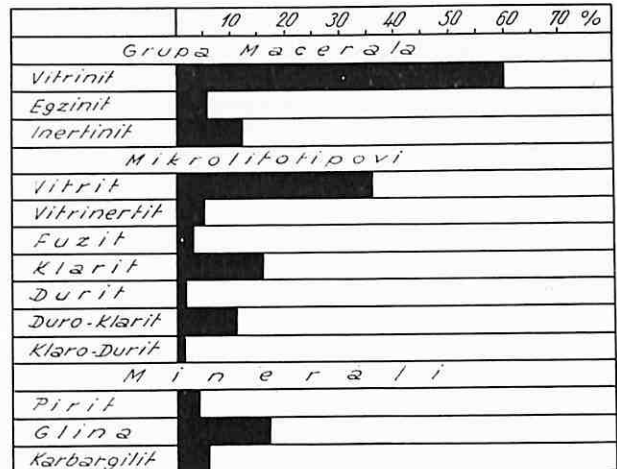 10 20 30 40 50 60 70 %
Grupa Macerala
Vitrinit
Egzinit
Inertinit
Mikrolitotipovi
Vitrit
Vitrinertit
Fuzit
Klarit
Durit
Duro-Klarit
Klaro-Durit
Minerali
Pirit
Glina
Karbargilit